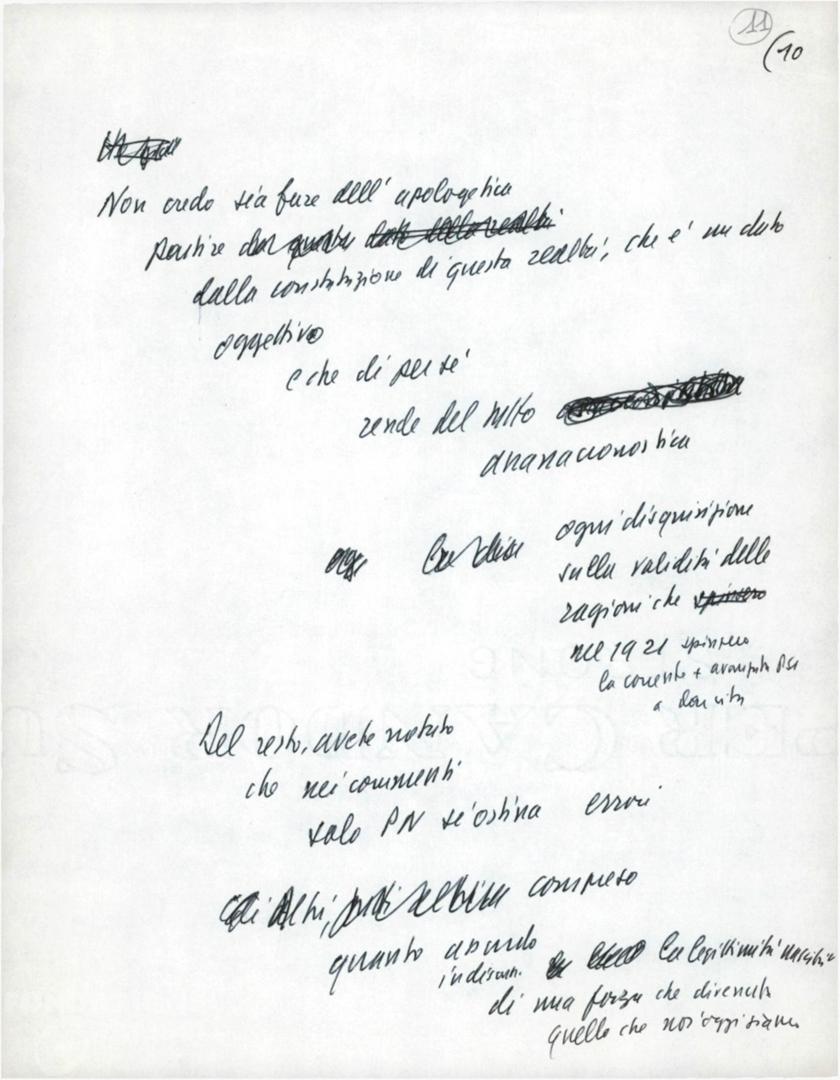 11
(10
Non credo sia fare dell' apologetica
partire dal questo dato della realtà
dalla constatazione di questa realtà, che è un dato
oggettivo
e che di per sé
rende del tutto
ananacronostica
ogni disquisizione
sulla validità delle
ragioni che spinsero
nel 1921 spinsero
la corrente + avanzata PSI
a dar vita
Del resto, avete notato
che nei commenti
solo PN si ostina errori
Gli Altri, compreso
quanto assurdo
in discuss. la legittimità
di una forza che divenuta
quello che noi oggi siamo